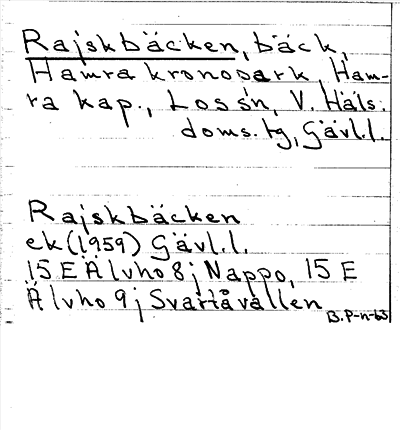 Rajskbäcken, bäck,
Hamra kronopark, Ham-
ra kap., Loss sn, V. Häls.
doms. tg, Gävl.l.
Rajskbäcken
ek (1959) Gävl.l.
15 E Älvho 8j Nappo, 15 E
Älvho 9j Svartåvallen
B.P-n-63